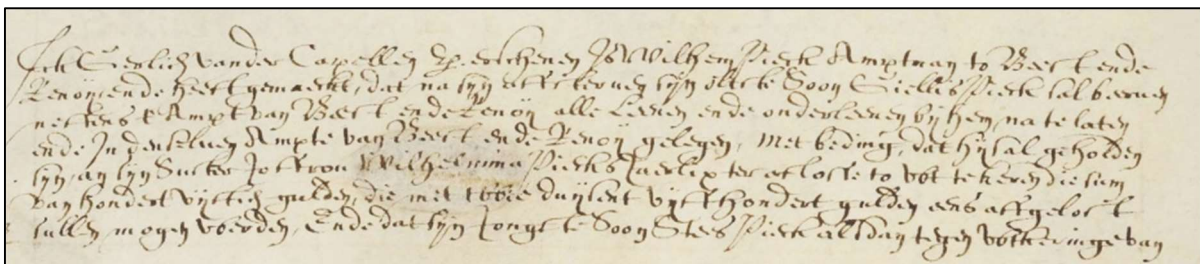 Ick Gerlich vander Capellen &. erschenen Is Wilhem Pieck Amptman to Beest ende
Renoy, ende heeft gemaeckt, dat na syn affsterven syn oltste Soon Giellis Pieck sal beerven
neffens t Ampt van Beest ende Renoy alle Leenen ende onderleenen by hem na te laten
ende In denselven Ampte van Beest ende Renoy gelegen, Met beding, dat hy sal geholden
syn, an syn Suster Joffrou Wilhelmina Piecks Jaerlix ter aflosse to uyt te keren die sum
van hondert vyftich gulden, die met twie duysent vyffhondert gulden eens affgelost
sullen mogen werden, Ende dat syn Jongste Soon Stees Pieck alsdan tegen uytkeringe van